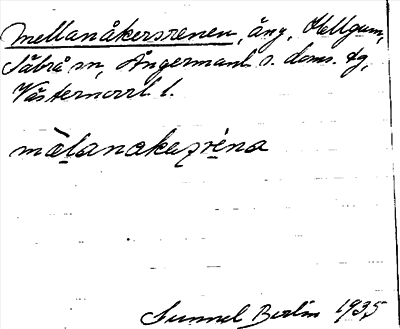 Mellanåkersrenen, äng, Hellgum,
Säbrå sn, Ångermanl. s. doms. tg,
Västernorrl. l.
mälanakeṣréna
Gunnel Berlin 1935